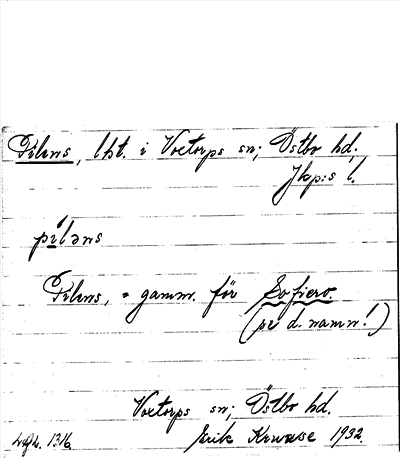 Pilens, lht. i Voxtorps sn; Östbo hd.
Jkp:s l.
pilǝns
Pilens, = gamm. för Sofiero.
(se d. namn!)
Voxtorps sn; Östbo hd.
1316. Erik Kruuse 1932.